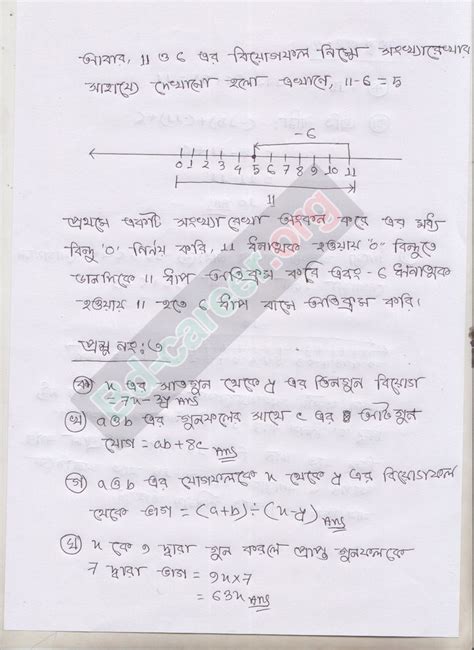 আবার, 11 ও 6 এর বিয়োগফল নিম্নে সংখ্যারেখার
সাহায্যে দেখানো হলো এখানে, 11-6 = 5
-6
0 1 2 3 4 5 6 7 8 9 10 11
11
প্রথমে একটি সংখ্যারেখা অংকন করে এর মধ্য
বিন্দু '0' নির্নয় করি, 11 ধনাত্মক হওয়ায় '0' বিন্দুতে
ডানদিকে 11 ধাপ অতিক্রম করি এবং -6 ঋনাত্মক
হওয়ায় 11 হতে 6 ধাপ বামে অতিক্রম করি।
Ed-career.org
প্রশ্ন নং: ৩
(ক) x এর সাতগুন থেকে y এর তিনগুন বিয়োগ
= 7x - 3y
(খ) a ও b এর গুনফলের সাথে c এর আটগুন
যোগ = ab + 8c Ans
(গ) a ও b এর যোগফলকে x থেকে y এর বিয়োগফল
থেকে ভাগ = (a+b) ÷ (x-y) Ans
(ঘ) x কে 9 দ্বারা গুন করলে প্রাপ্ত গুনফলকে
7 দ্বারা ভাগ = 9x × 7
= 63x Ans